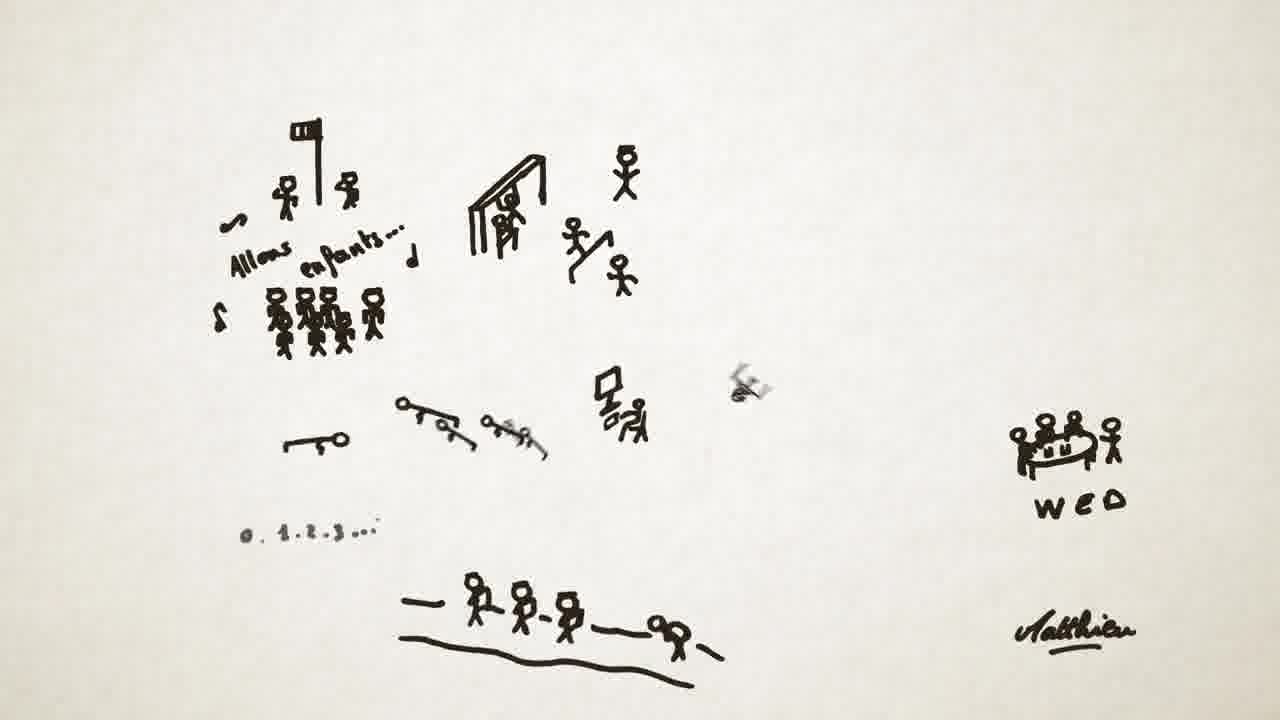 Allons enfants...
0.1.2.3...
WeD
Matthieu